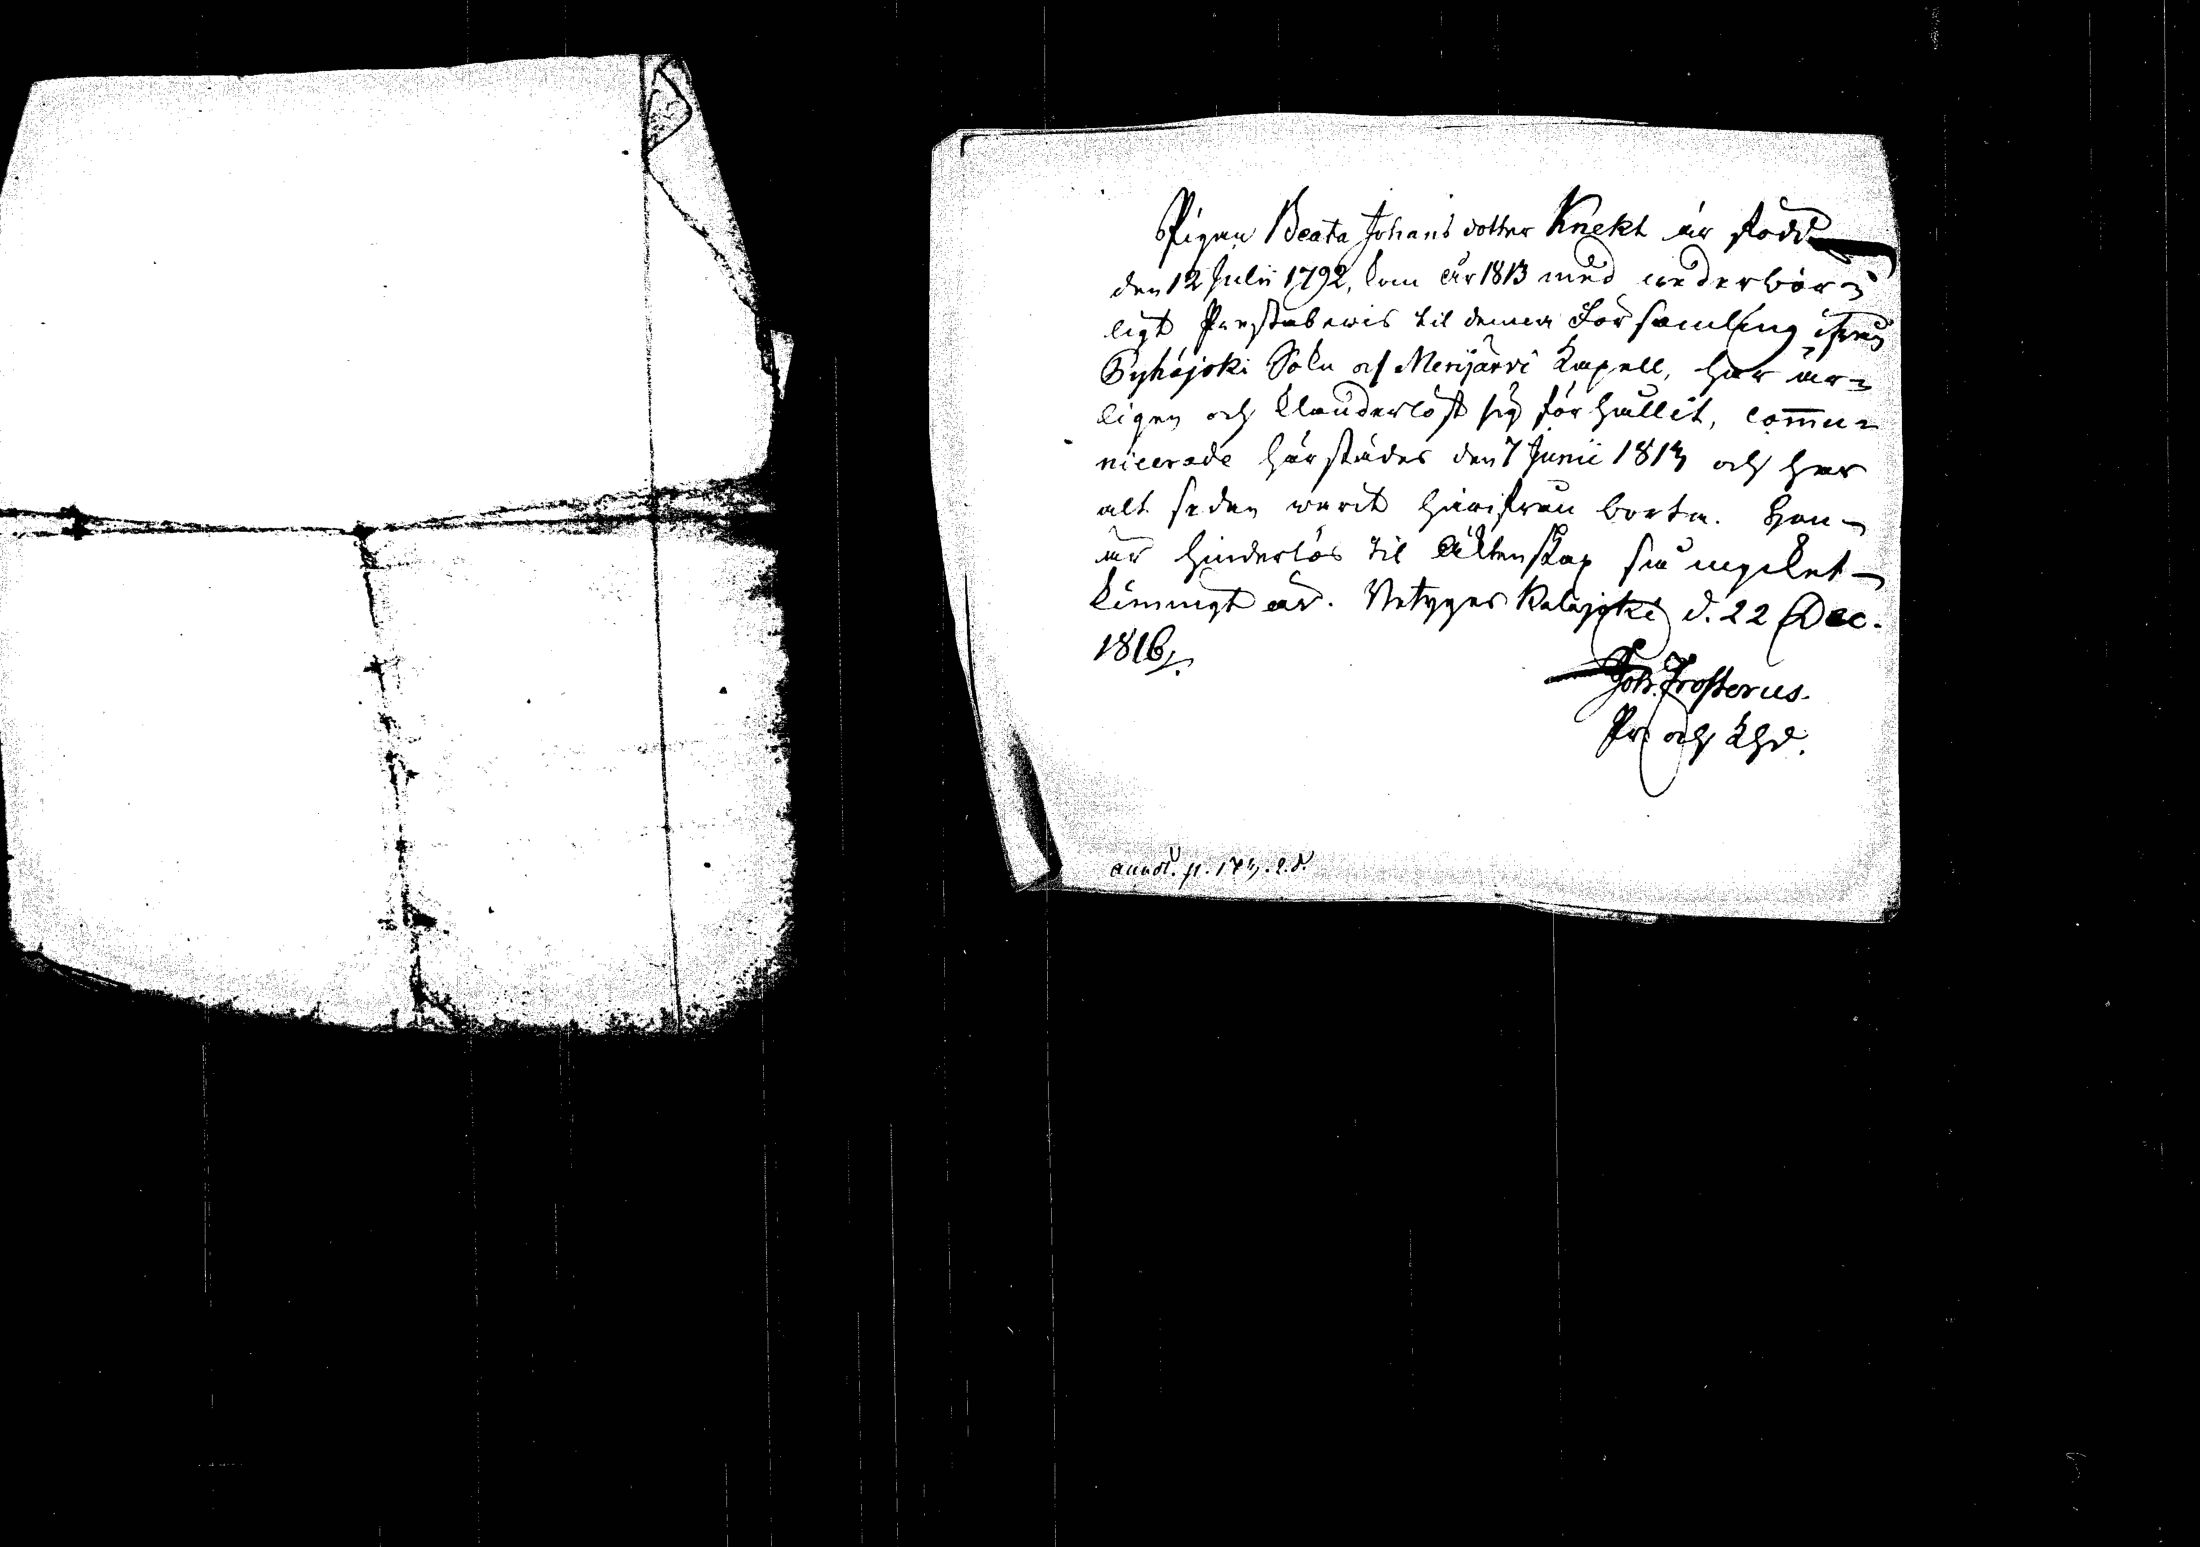 Pigan Beata Johans dotter Knekt är född
den 12 Julii 1792, kom år 1813 med wederbör=
ligt Prestabewis til denna Församling ifrån
Pyhäjoki Sokn och Merijärvi Kapell, har är=
ligen och klanderlöst sig förhållit, com̅u=
nicerade härstädes den 7 Junii 1813 och har
alt sedan warit härifrån borta. Hon
är hinderlös til Äktenskap så mycket
kunnigt är. Betygar Kalajoki d. 22 Dec.
1816.
Joh: Frosterus.
Pr. och Khd.
annot. p.